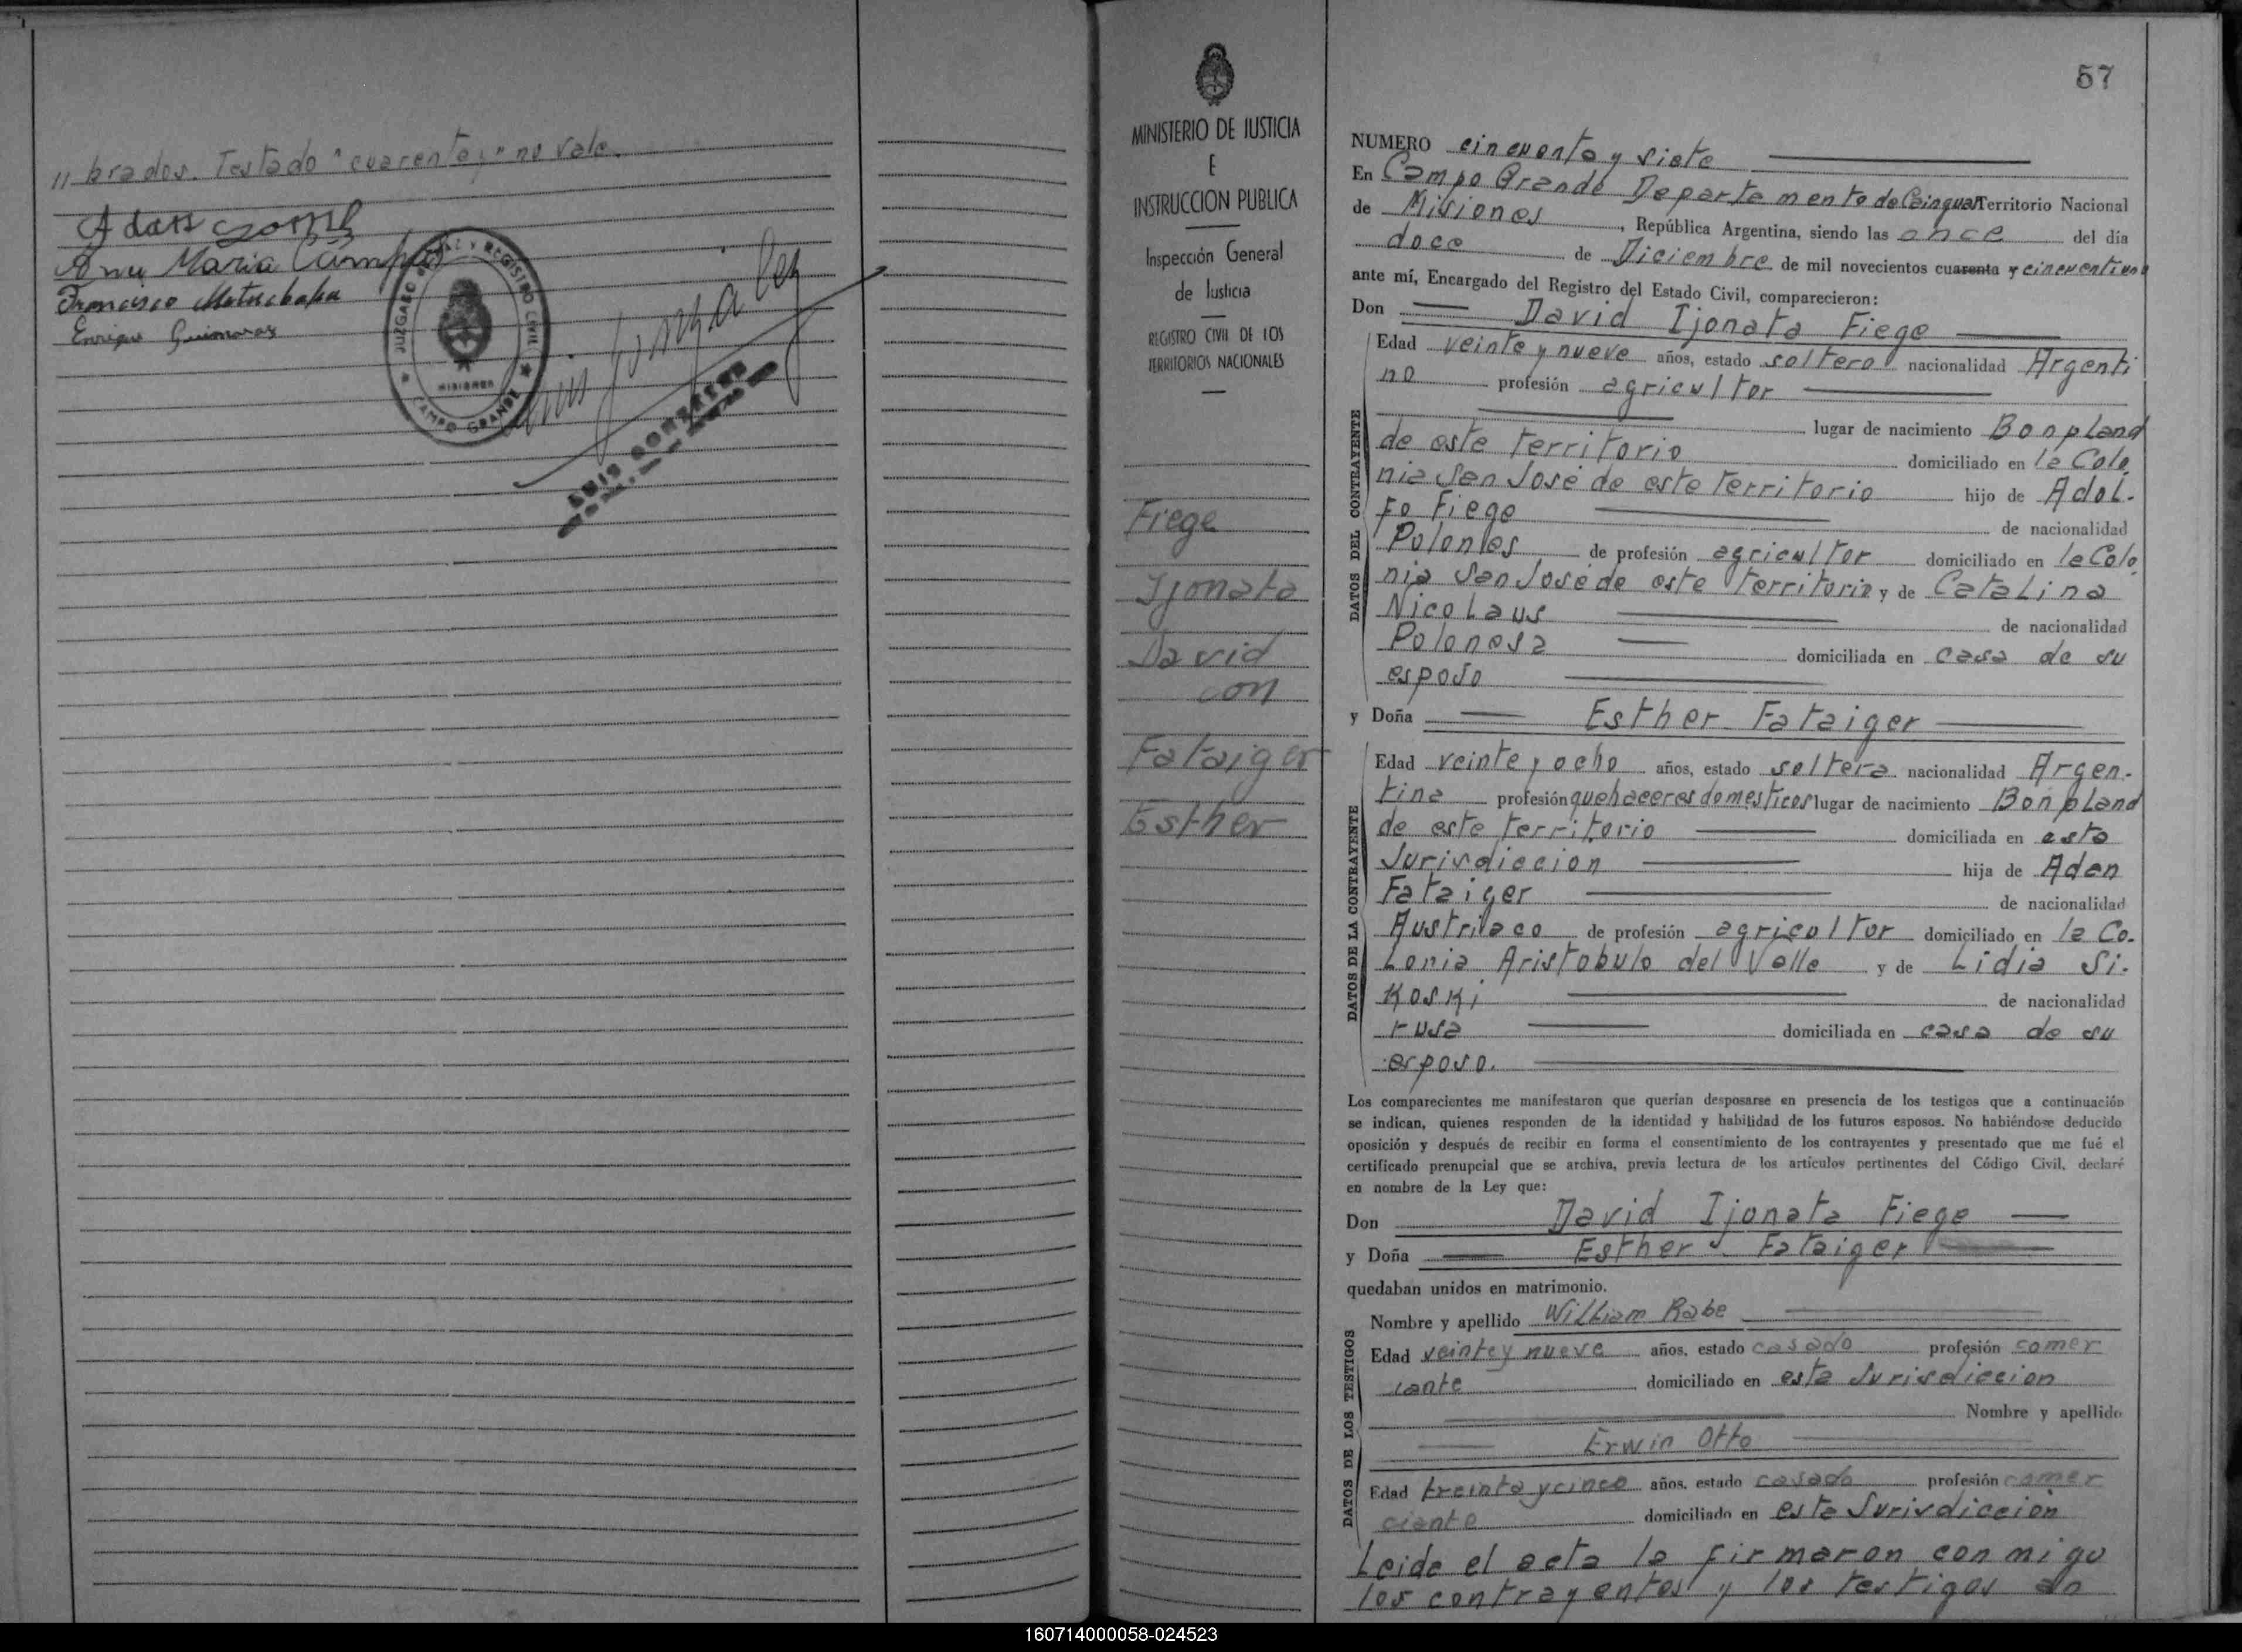 // brados. Testado "cuarenta y" no vale.
Adan
Ana Maria
Francisco
Enrique Guimaraes
JUZGADO DE PAZ Y REGISTRO CIVIL
MISIONES
CAMPO GRANDE
Luis González
LUIS GONZALEZ
MINISTERIO DE JUSTICIA
E
INSTRUCCION PUBLICA
Inspección General
de Justicia
REGISTRO CIVIL DE LOS
TERRITORIOS NACIONALES
Fiege
Ijonata
David
con
Fataiger
Esther
57
NUMERO cincuenta y siete
En Campo Grande Departamento de Cainguas Territorio Nacional
de Misiones, República Argentina, siendo las once del día
doce de Diciembre de mil novecientos cuarenta y cincuentiuno
ante mí, Encargado del Registro del Estado Civil, comparecieron:
Don David Ijonata Fiege
DATOS DEL CONTRAYENTE
Edad veinte y nueve años, estado soltero nacionalidad Argenti
no profesión agricultor
lugar de nacimiento Bonpland
de este territorio domiciliado en la Colo
nia San José de este territorio hijo de Adol-
fo Fiege de nacionalidad
Polones de profesión agricultor domiciliado en la Colo
nia San José de este territorio y de Catalina
Nicolaus de nacionalidad
Polonesa domiciliada en casa de su
esposo
y Doña Esther Fataiger
DATOS DE LA CONTRAYENTE
Edad veinte y ocho años, estado soltera nacionalidad Argen-
tina profesión quehaceres domesticos lugar de nacimiento Bonpland
de este territorio domiciliada en esta
Jurisdiccion hija de Adan
Fataiger de nacionalidad
Austriaco de profesión agricultor domiciliado en la Co-
lonia Aristobulo del Valle y de Lidia Si-
koski de nacionalidad
rusa domiciliada en casa de su
esposo.
Los comparecientes me manifestaron que querían desposarse en presencia de los testigos que a continuación
se indican, quienes responden de la identidad y habilidad de los futuros esposos. No habiéndose deducido
oposición y después de recibir en forma el consentimiento de los contrayentes y presentado que me fué el
certificado prenupcial que se archiva, previa lectura de los artículos pertinentes del Código Civil, declaré
en nombre de la Ley que:
Don David Ijonata Fiege
y Doña Esther Fataiger
quedaban unidos en matrimonio.
DATOS DE LOS TESTIGOS
Nombre y apellido William Rabe
Edad veinte y nueve años, estado casado profesión comer
ciante domiciliado en esta Jurisdiccion
Nombre y apellido
Erwin Otto
Edad treinta y cinco años, estado casado profesión comer
ciante domiciliado en esta Jurisdicción
Leida el acta la firmaron conmigo
los contrayentes y los testigos an
160714000058-024523